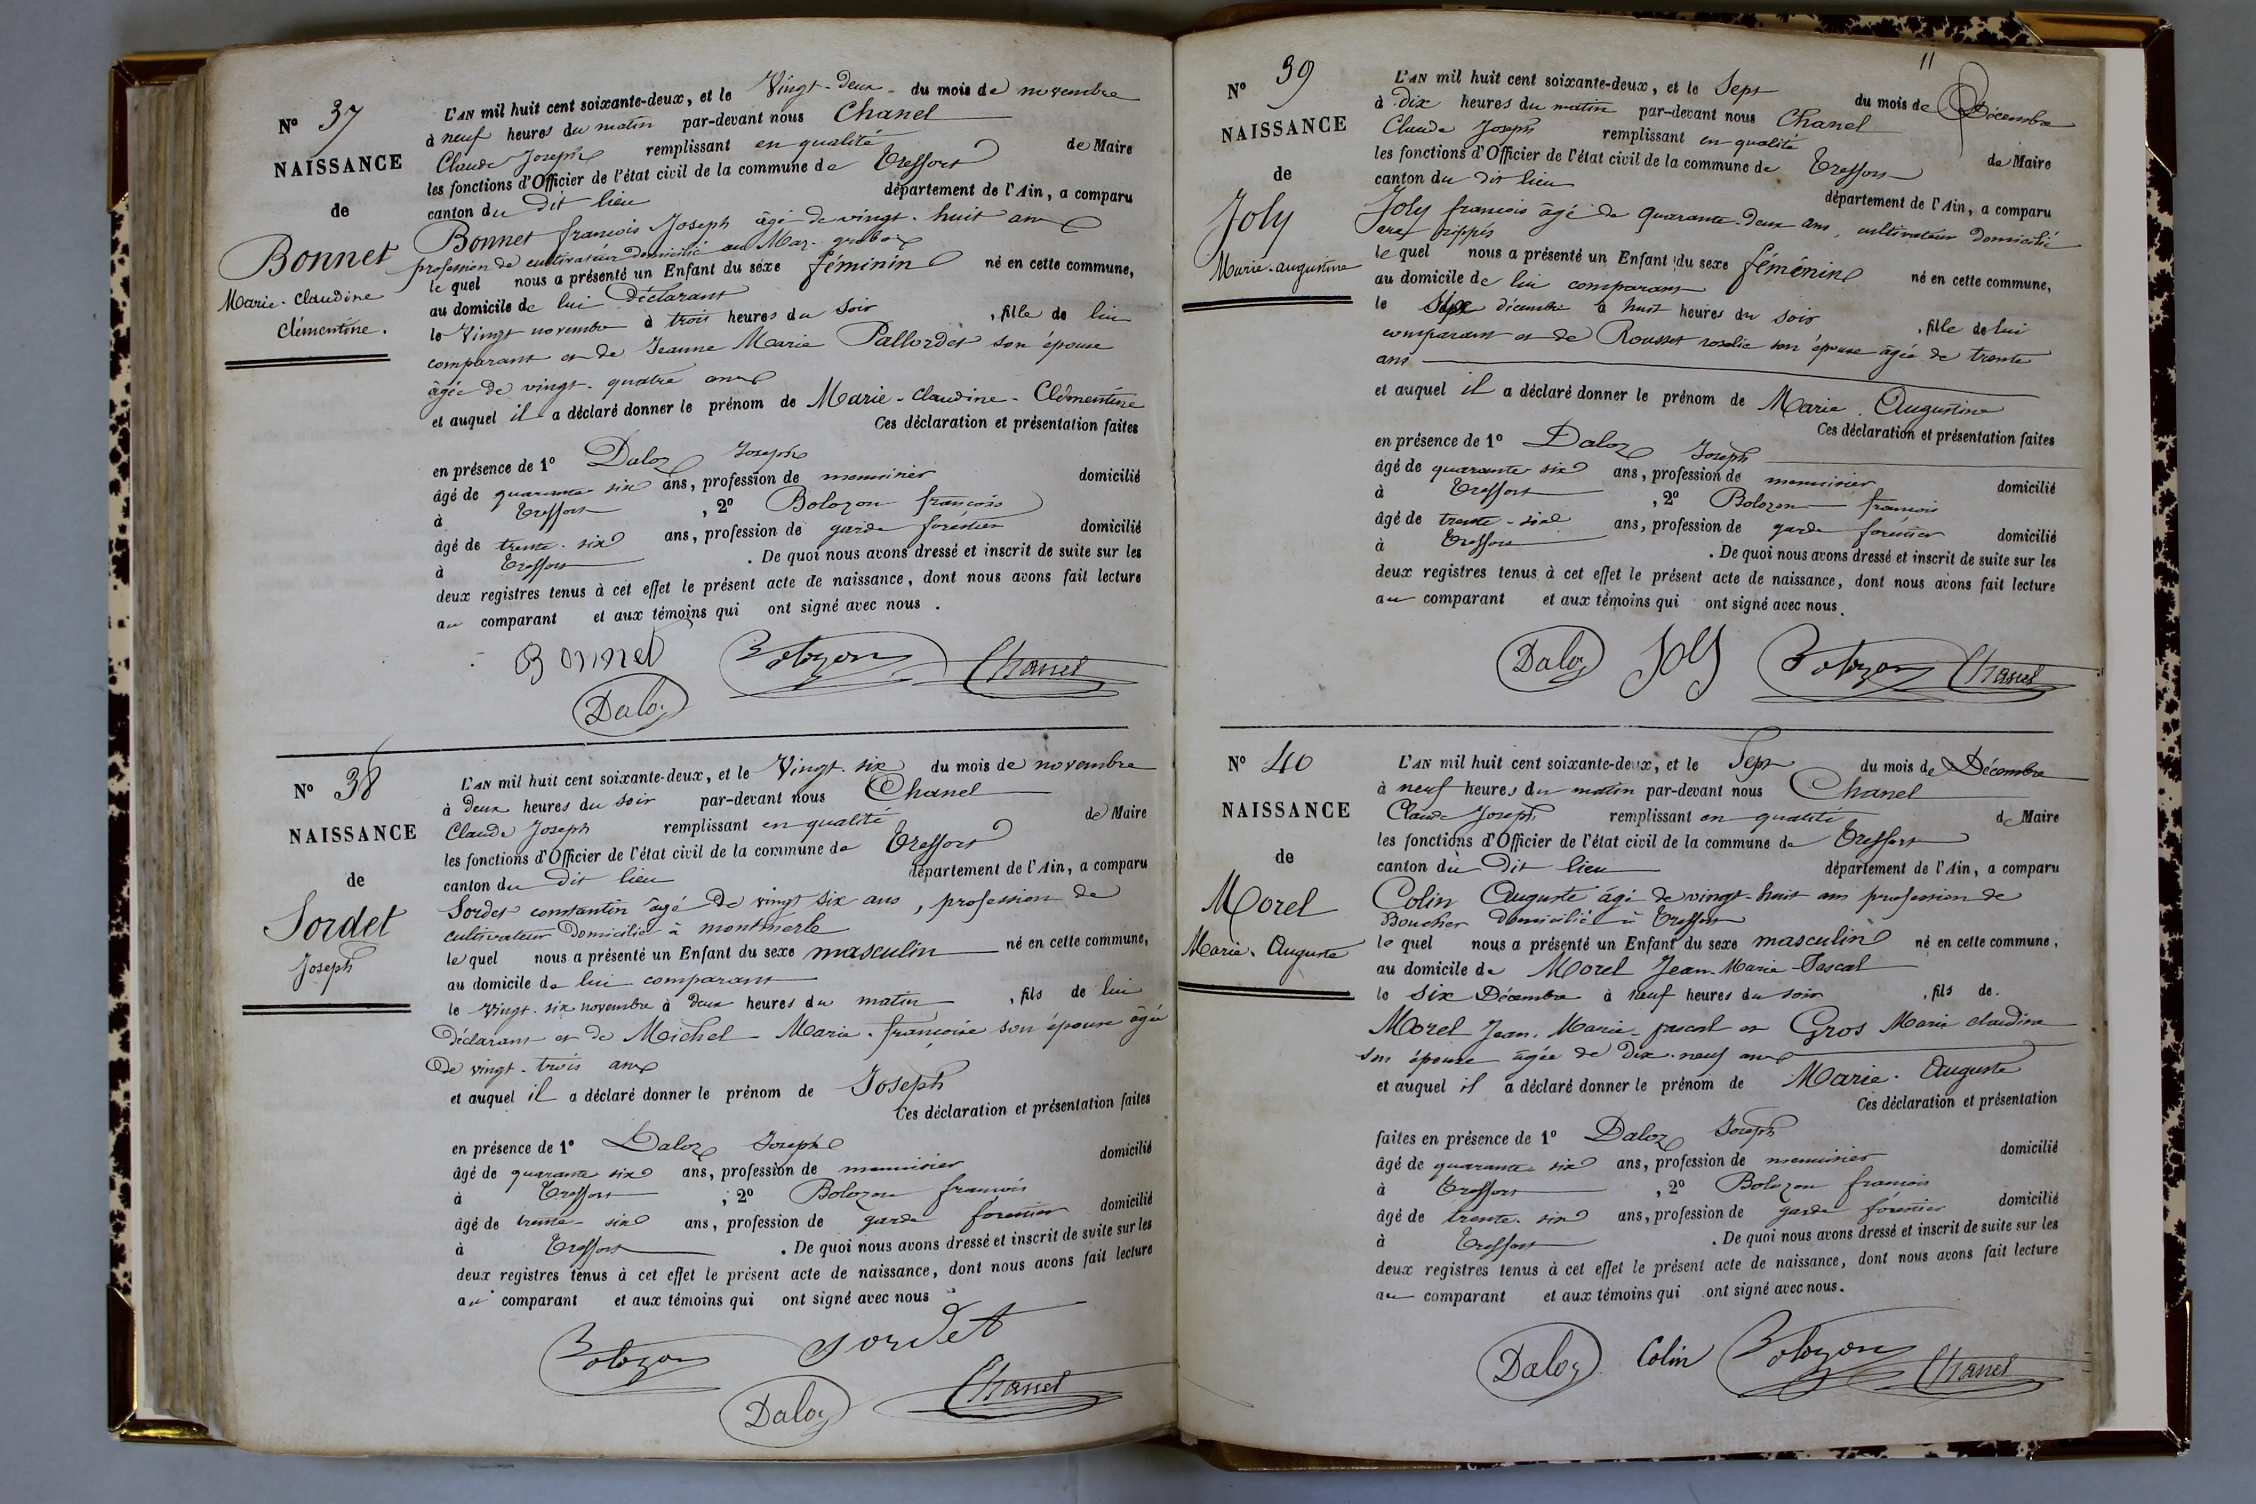 N° 37
NAISSANCE
de
Bonnet
Marie-Claudine
Clémentine.
L'AN mil huit cent soixante-deux, et le Vingt-deux du mois de novembre
à neuf heures du matin par-devant nous Chanel
Claude Joseph remplissant en qualité de Maire
les fonctions d'Officier de l'état civil de la commune de Treffort
canton du dit lieu département de l'Ain, a comparu
Bonnet françois Joseph âgé de vingt-huit ans
profession de cultivateur domicilié au
le quel nous a présenté un Enfant du sexe féminin né en cette commune,
au domicile de lui déclarant
le Vingt novembre à trois heures du soir, fille de lui
comparant et de Jeanne Marie Pallordet son épouse
âgée de vingt-quatre ans
et auquel il a déclaré donner le prénom de Marie-Claudine-Clémentine
Ces déclaration et présentation faites
en présence de 1° Daloz Joseph
âgé de quarante six ans, profession de menuisier domicilié
à Treffort, 2° Bolozon françois
âgé de trente-six ans, profession de garde forestier domicilié
à Treffort. De quoi nous avons dressé et inscrit de suite sur les
deux registres tenus à cet effet le présent acte de naissance, dont nous avons fait lecture
au comparant et aux témoins qui ont signé avec nous.
Bonnet Bolozon Chanel
Daloz
N° 38
NAISSANCE
de
Sordet
Joseph
L'AN mil huit cent soixante-deux, et le Vingt-six du mois de novembre
à deux heures du soir par-devant nous Chanel
Claude Joseph remplissant en qualité de Maire
les fonctions d'Officier de l'état civil de la commune de Treffort
canton du dit lieu département de l'Ain, a comparu
Sordet constantin âgé de vingt six ans, profession de
cultivateur domicilié à montmerle
le quel nous a présenté un Enfant du sexe masculin né en cette commune,
au domicile de lui comparant
le vingt-six novembre à deux heures du matin, fils de lui
déclarant et de Michel Marie-françoise son épouse âgée
de vingt-trois ans
et auquel il a déclaré donner le prénom de Joseph
Ces déclaration et présentation faites
en présence de 1° Daloz Joseph
âgé de quarante six ans, profession de menuisier domicilié
à Treffort, 2° Bolozon françois
âgé de trente-six ans, profession de garde forestier domicilié
à Treffort. De quoi nous avons dressé et inscrit de suite sur les
deux registres tenus à cet effet le présent acte de naissance, dont nous avons fait lecture
au comparant et aux témoins qui ont signé avec nous
Bolozon Sordet
Daloz Chanel
11
N° 39
NAISSANCE
de
Joly
Marie-augustine
L'AN mil huit cent soixante-deux, et le Sept du mois de Décembre
à dix heures du matin par-devant nous Chanel
Claude Joseph remplissant en qualité de Maire
les fonctions d'Officier de l'état civil de la commune de Treffort
canton du dit lieu département de l'Ain, a comparu
Joly françois âgé de quarante-deux ans, cultivateur domicilié
aux
le quel nous a présenté un Enfant du sexe féménin né en cette commune,
au domicile de lui comparant
le décembre à huit heures du soir, fille de lui
comparant et de Rousset rosalie son épouse âgée de trente
ans
et auquel il a déclaré donner le prénom de Marie Augustine
Ces déclaration et présentation faites
en présence de 1° Daloz Joseph
âgé de quarante six ans, profession de menuisier domicilié
à Treffort, 2° Bolozon françois
âgé de trente-six ans, profession de garde forestier domicilié
à Treffort. De quoi nous avons dressé et inscrit de suite sur les
deux registres tenus à cet effet le présent acte de naissance, dont nous avons fait lecture
au comparant et aux témoins qui ont signé avec nous.
Daloz Joly Bolozon Chanel
N° 40
NAISSANCE
de
Morel
Marie-Auguste
L'AN mil huit cent soixante-deux, et le Sept du mois de Décembre
à neuf heures du matin par-devant nous Chanel
Claude Joseph remplissant en qualité de Maire
les fonctions d'Officier de l'état civil de la commune de Treffort
canton du dit lieu département de l'Ain, a comparu
Colin Auguste âgé de vingt-huit ans profession de
Boucher domicilié à Treffort
le quel nous a présenté un Enfant du sexe masculin né en cette commune,
au domicile de Morel Jean-Marie-Pascal
le six Décembre à neuf heures du soir, fils de.
Morel Jean-Marie-pascal et Gros Marie claudine
son épouse âgée de dix-neuf ans
et auquel il a déclaré donner le prénom de Marie-Auguste
Ces déclaration et présentation
faites en présence de 1° Daloz Joseph
âgé de quarante six ans, profession de menuisier domicilié
à Treffort, 2° Bolozon françois
âgé de trente-six ans, profession de garde forestier domicilié
à Treffort. De quoi nous avons dressé et inscrit de suite sur les
deux registres tenus à cet effet le présent acte de naissance, dont nous avons fait lecture
au comparant et aux témoins qui ont signé avec nous.
Daloz Colin Bolozon Chanel